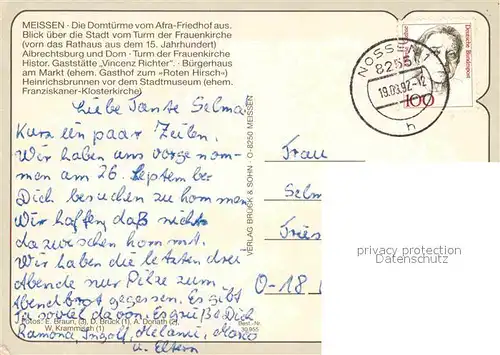 MEISSEN - Die Domtürme vom Afra-Friedhof aus.
Blick über die Stadt vom Turm der Frauenkirche
(vorn das Rathaus aus dem 15. Jahrhundert)
Albrechtsburg und Dom · Turm der Frauenkirche
Histor. Gaststätte „Vincenz Richter". · Bürgerhaus
am Markt (ehem. Gasthof zum »Roten Hirsch«)
Heinrichsbrunnen vor dem Stadtmuseum (ehem.
Franziskaner-Klosterkirche)
Liebe Tante Selma
Kurz ein paar Zeilen.
Wir haben uns vorge nom-
men am 26. September
Dich besuchen zu kommen
Wir hoffen, daß nichts
dazwischen kommt.
Wir haben die letzten drei
Abende nur Pilze zum
Abendbrot gegessen. Es gibt
ja soviel davon. Es grüße Dich
Ramona, Ingolf, Melanie, Marco
u. Eltern
Fotos: E. Braun, (3), D. Brück (1), A. Donath (2),
W. Krammisch (1)
Best.-Nr.
VERLAG BRÜCK & SOHN · O-8250 MEISSEN
NOSSEN 1
8255
19.09.92-12
h
Deutsche Bundespost
100
Frau
Selm
Fries
O-18
privacy protection
Datenschutz